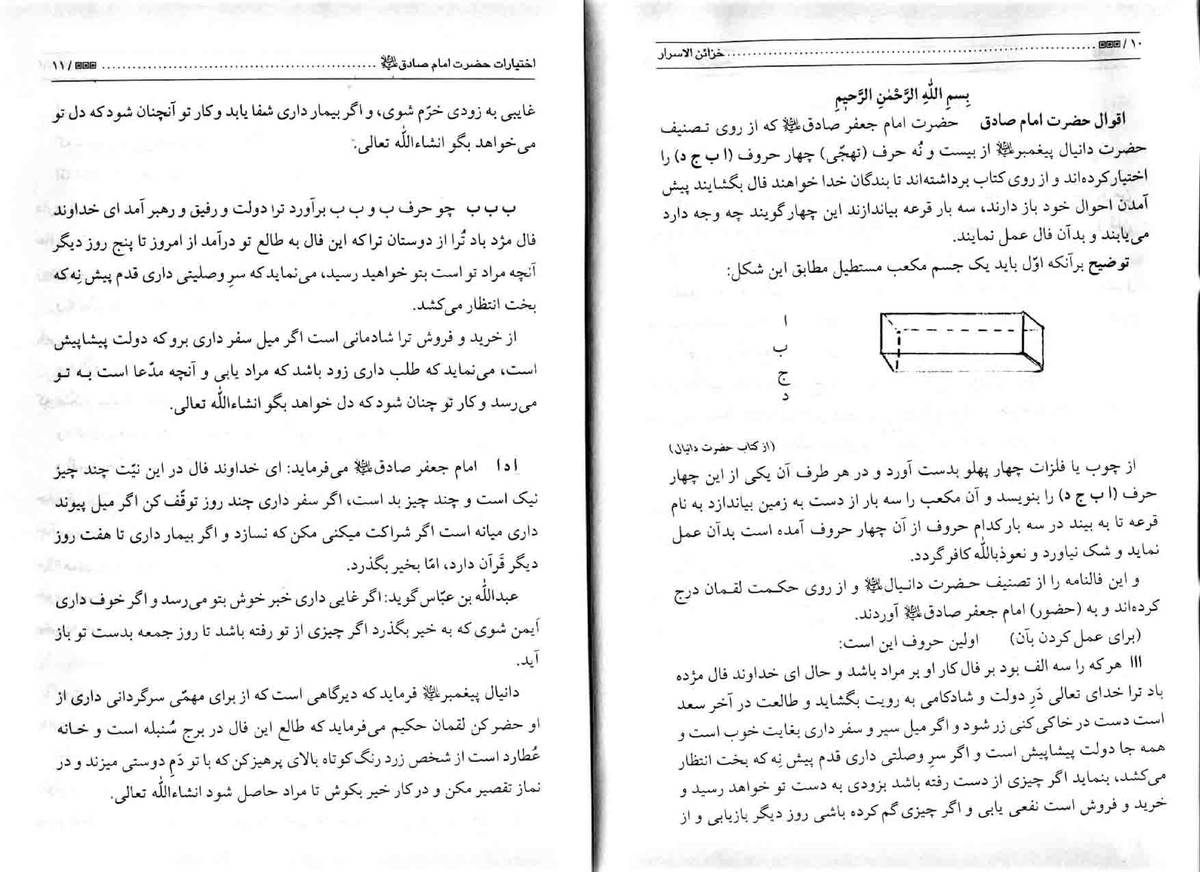 ۱۰ / خزائن الاسرار
بِسمِ اللّٰهِ الرَّحْمٰنِ الرَّحیمِ
اقوال حضرت امام صادق حضرت امام جعفر صادق که از روی تصنیف
حضرت دانیال پیغمبر از بیست و نُه حرف (تهجّی) چهار حروف (ا ب ج د) را
اختیار کرده‌اند و از روی کتاب برداشته‌اند تا بندگان خدا خواهند فال بگشایند پیش
آمدن احوال خود باز دارند، سه بار قرعه بیاندازند این چهار گویند چه وجه دارد
می‌یابند و بدآن فال عمل نمایند.
توضیح برآنکه اوّل باید یک جسم مکعب مستطیل مطابق این شکل:
ا
ب
ج
د
(از کتاب حضرت دانیال)
از چوب یا فلزات چهار پهلو بدست آورد و در هر طرف آن یکی از این چهار
حرف (ا ب ج د) را بنویسد و آن مکعب را سه بار از دست به زمین بیاندازد به نام
قرعه تا به بیند در سه بار کدام حروف از آن چهار حروف آمده است بدآن عمل
نماید و شک نیاورد و نعوذبالله کافر گردد.
و این فالنامه را از تصنیف حضرت دانیال و از روی حکمت لقمان درج
کرده‌اند و به (حضور) امام جعفر صادق آوردند.
(برای عمل کردن بآن) اولین حروف این است:
ااا هر که را سه الف بود بر فال کار او بر مراد باشد و حال ای خداوند فال مژده
باد ترا خدای تعالی دَرِ دولت و شادکامی به رویت بگشاید و طالعت در آخر سعد
است دست در خاکی کنی زر شود و اگر میل سیر و سفر داری بغایت خوب است و
همه جا دولت پیشاپیش است و اگر سرِ وصلتی داری قدم پیش نِه که بخت انتظار
می‌کشد، بنماید اگر چیزی از دست رفته باشد بزودی به دست تو خواهد رسید و
خرید و فروش است نفعی یابی و اگر چیزی گم کرده باشی روز دیگر بازیابی و از
اختیارات حضرت امام صادق / ۱۱
غایبی به زودی خرّم شوی، و اگر بیمار داری شفا یابد و کار تو آنچنان شود که دل تو
می‌خواهد بگو انشاءالله تعالی.
ب ب ب چو حرف ب و ب ب برآورد ترا دولت و رفیق و رهبر آمد ای خداوند
فال مژد باد تُرا از دوستان ترا که این فال به طالع تو درآمد از امروز تا پنج روز دیگر
آنچه مراد تو است بتو خواهید رسید، می‌نماید که سرِ وصلیتی داری قدم پیش نِه که
بخت انتظار می‌کشد.
از خرید و فروش ترا شادمانی است اگر میل سفر داری برو که دولت پیشاپیش
است، می‌نماید که طلب داری زود باشد که مراد یابی و آنچه مدّعا است به تو
می‌رسد و کار تو چنان شود که دل خواهد بگو انشاءالله تعالی.
ا د ا امام جعفر صادق می‌فرماید: ای خداوند فال در این نیّت چند چیز
نیک است و چند چیز بد است، اگر سفر داری چند روز توقّف کن اگر میل پیوند
داری میانه است اگر شراکت میکنی مکن که نسازد و اگر بیمار داری تا هفت روز
دیگر قَرآن دارد، امّا بخیر بگذرد.
عبدالله بن عبّاس گوید: اگر غایی داری خبر خوش بتو می‌رسد و اگر خوف داری
اَیمن شوی که به خیر بگذرد اگر چیزی از تو رفته باشد تا روز جمعه بدست تو باز
آید.
دانیال پیغمبر فرماید که دیرگاهی است که از برای مهمّی سرگردانی داری از
او حضر کن لقمان حکیم می‌فرماید که طالع این فال در برج سُنبله است و خانه
عُطارد است از شخص زرد رنگ کوتاه بالای پرهیز کن که با تو دَمِ دوستی میزند و در
نماز تقصیر مکن و در کار خیر بکوش تا مراد حاصل شود انشاءالله تعالی.